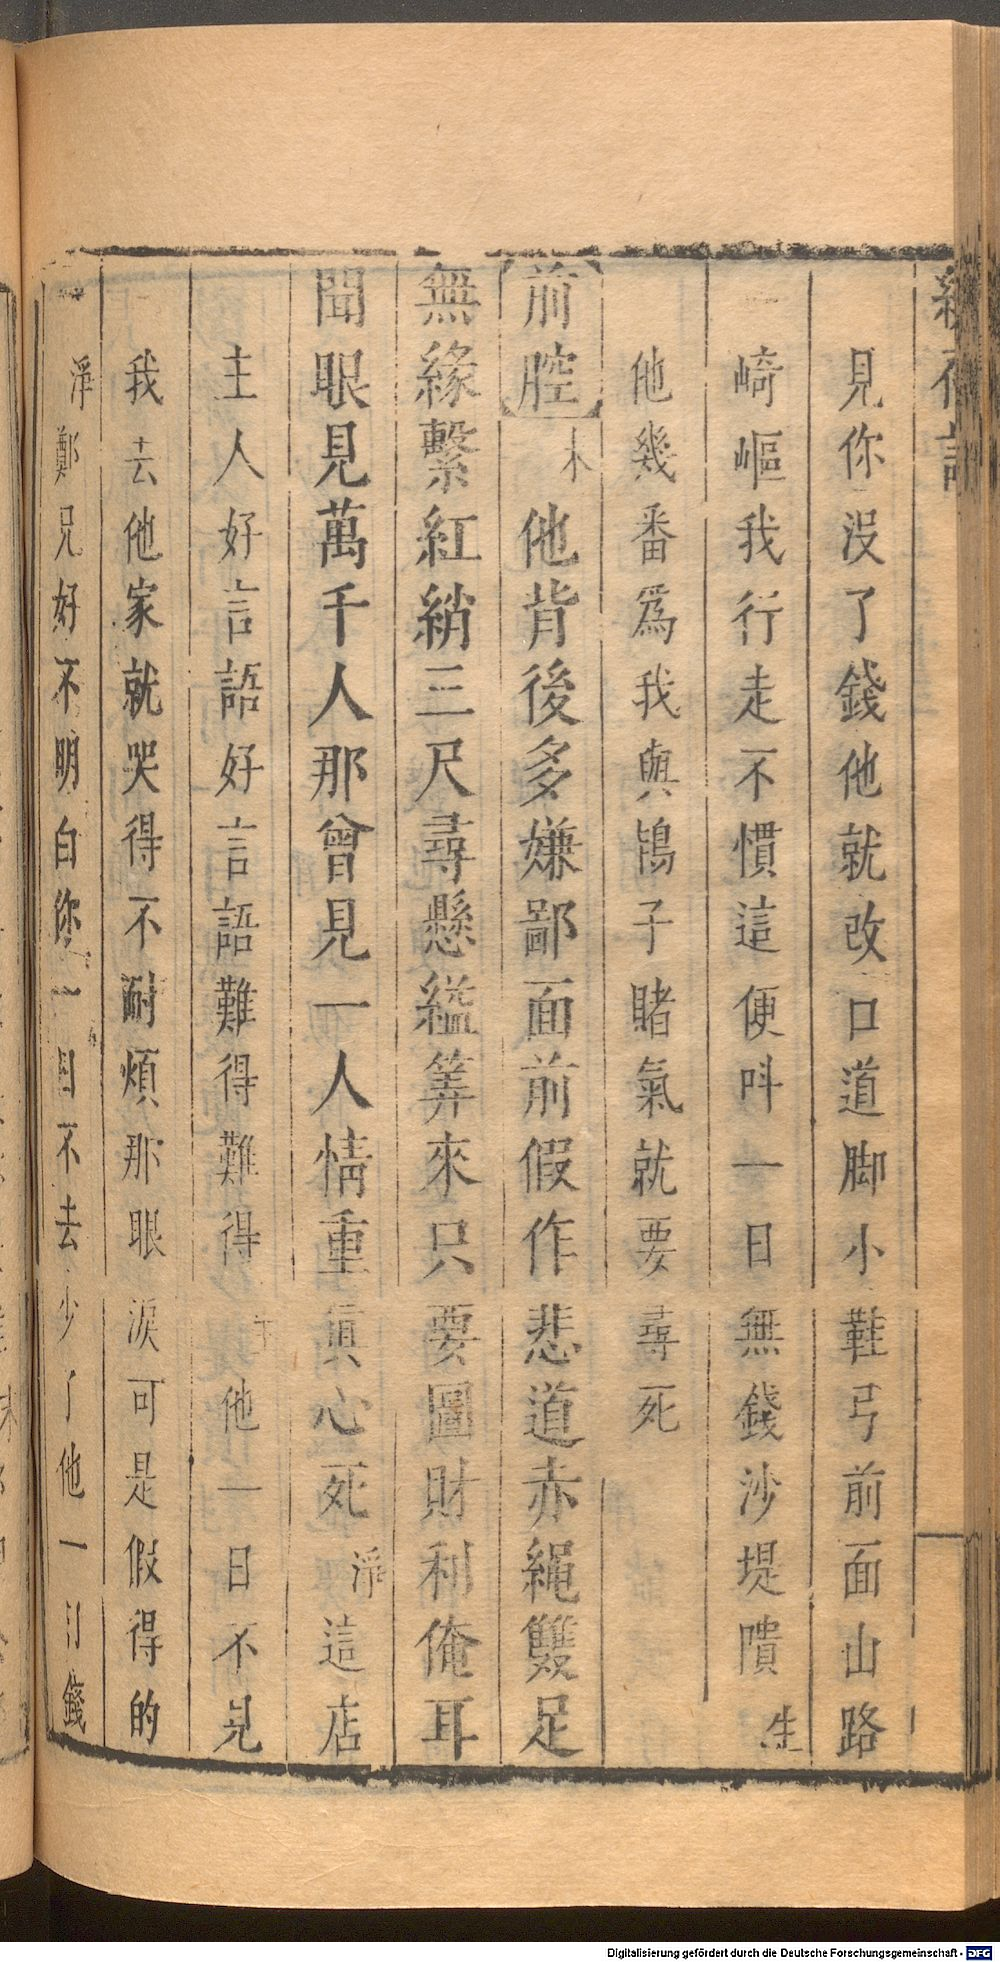 見你没了錢他就改口道脚小鞋弓前面山路
崎嶇我行走不慣這便呌一日無錢沙堤隤生
他幾番爲我與鴇子賭氣就要尋死
前腔末他背後多嫌鄙面前假作悲道赤繩雙足
無緣繫紅綃三尺尋懸縊筭來只要圖財利俺耳
聞眼見萬千人那曾見一人情重眞心死淨這店
主人好言語好言語難得難得他一日不見
我去他家就哭得不耐煩那眼淚可是假得的
淨鄭兄好不明白你一日不去少了他一日錢
Digitalisierung gefördert durch die Deutsche Forschungsgemeinschaft - DFG